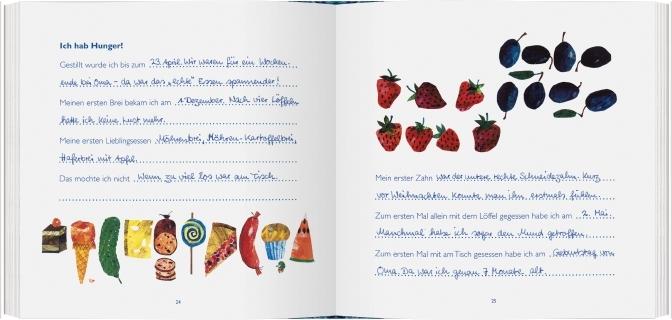 Ich hab Hunger!
Gestillt wurde ich bis zum 23. April. Wir waren für ein Wochen-
ende bei Oma – da war das „echte“ Essen spannender!
Meinen ersten Brei bekam ich am 1. Dezember. Nach vier Löffeln
hatte ich keine Lust mehr.
Meine ersten Lieblingsessen Möhrenbrei, Möhren-Kartoffelbrei,
Haferbrei mit Apfel.
Das mochte ich nicht Wenn zu viel los war am Tisch.
24
Mein erster Zahn war der untere rechte Schneidezahn. Kurz
vor Weihnachten konnte man ihn erstmals fühlen.
Zum ersten Mal allein mit dem Löffel gegessen habe ich am 2. Mai.
Manchmal habe ich sogar den Mund getroffen.
Zum ersten Mal mit am Tisch gesessen habe ich am Geburtstag von
Oma. Da war ich genau 7 Monate alt.
25